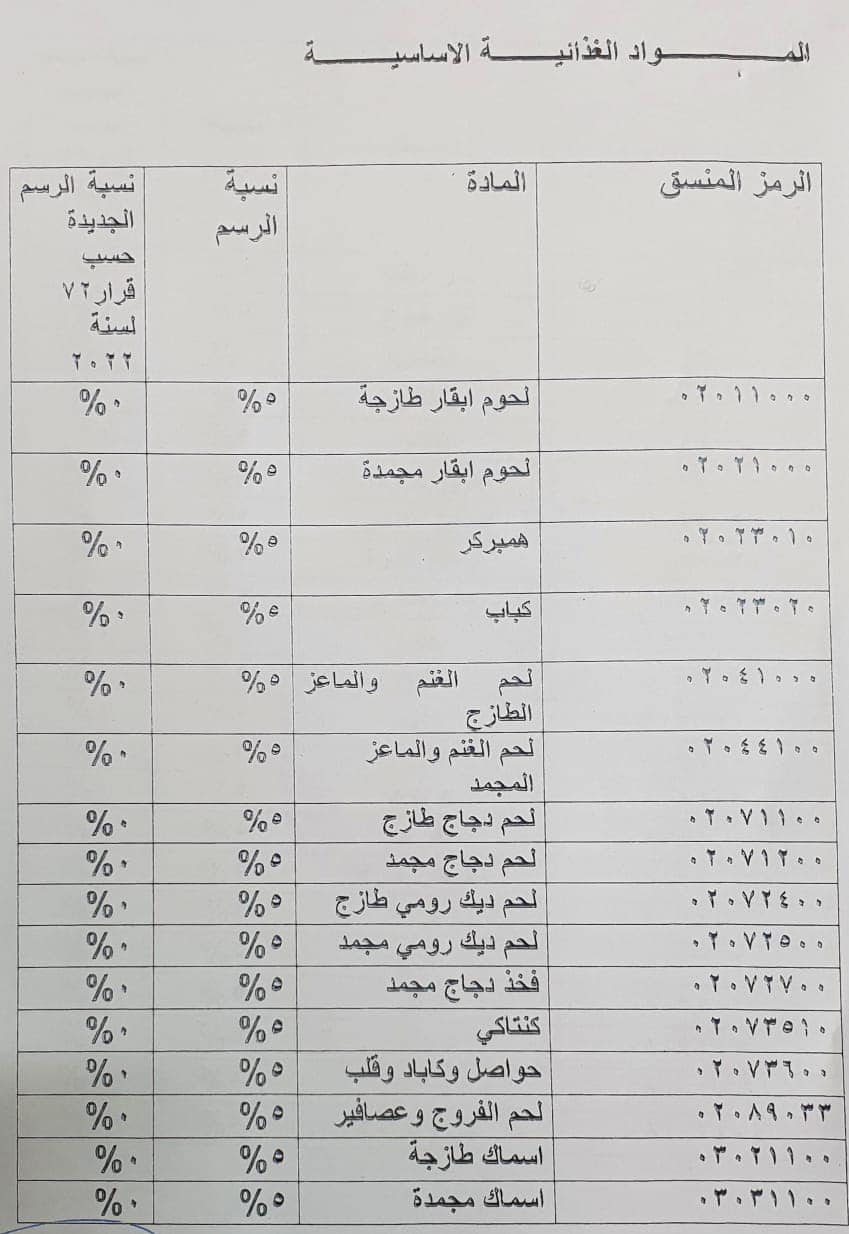 المـــــــواد الغذائيـــــــة الاساسيـــــــة
الرمز المنسق المادة نسبة الرسم نسبة الرسم الجديدة حسب قرار ٧٢ لسنة ٢٠٢٢
٠٢٠١١٠٠٠ لحوم ابقار طازجة ٥% ٠%
٠٢٠٢١٠٠٠ لحوم ابقار مجمدة ٥% ٠%
٠٢٠٢٣٠١٠ همبركر ٥% ٠%
٠٢٠٢٣٠٢٠ كباب ٥% ٠%
٠٢٠٤١٠٠٠ لحم الغنم والماعز الطازج ٥% ٠%
٠٢٠٤٤١٠٠ لحم الغنم والماعز المجمد ٥% ٠%
٠٢٠٧١١٠٠ لحم دجاج طازج ٥% ٠%
٠٢٠٧١٢٠٠ لحم دجاج مجمد ٥% ٠%
٠٢٠٧٢٤٠٠ لحم ديك رومي طازج ٥% ٠%
٠٢٠٧٢٥٠٠ لحم ديك رومي مجمد ٥% ٠%
٠٢٠٧٢٧٠٠ فخذ دجاج مجمد ٥% ٠%
٠٢٠٧٣٥١٠ كنتاكي ٥% ٠%
٠٢٠٧٣٦٠٠ حواصل وكاباد وقلب ٥% ٠%
٠٢٠٨٩٠٣٣ لحم الفروج وعصافير ٥% ٠%
٠٣٠٢١١٠٠ اسماك طازجة ٥% ٠%
٠٣٠٣١١٠٠ اسماك مجمدة ٥% ٠%